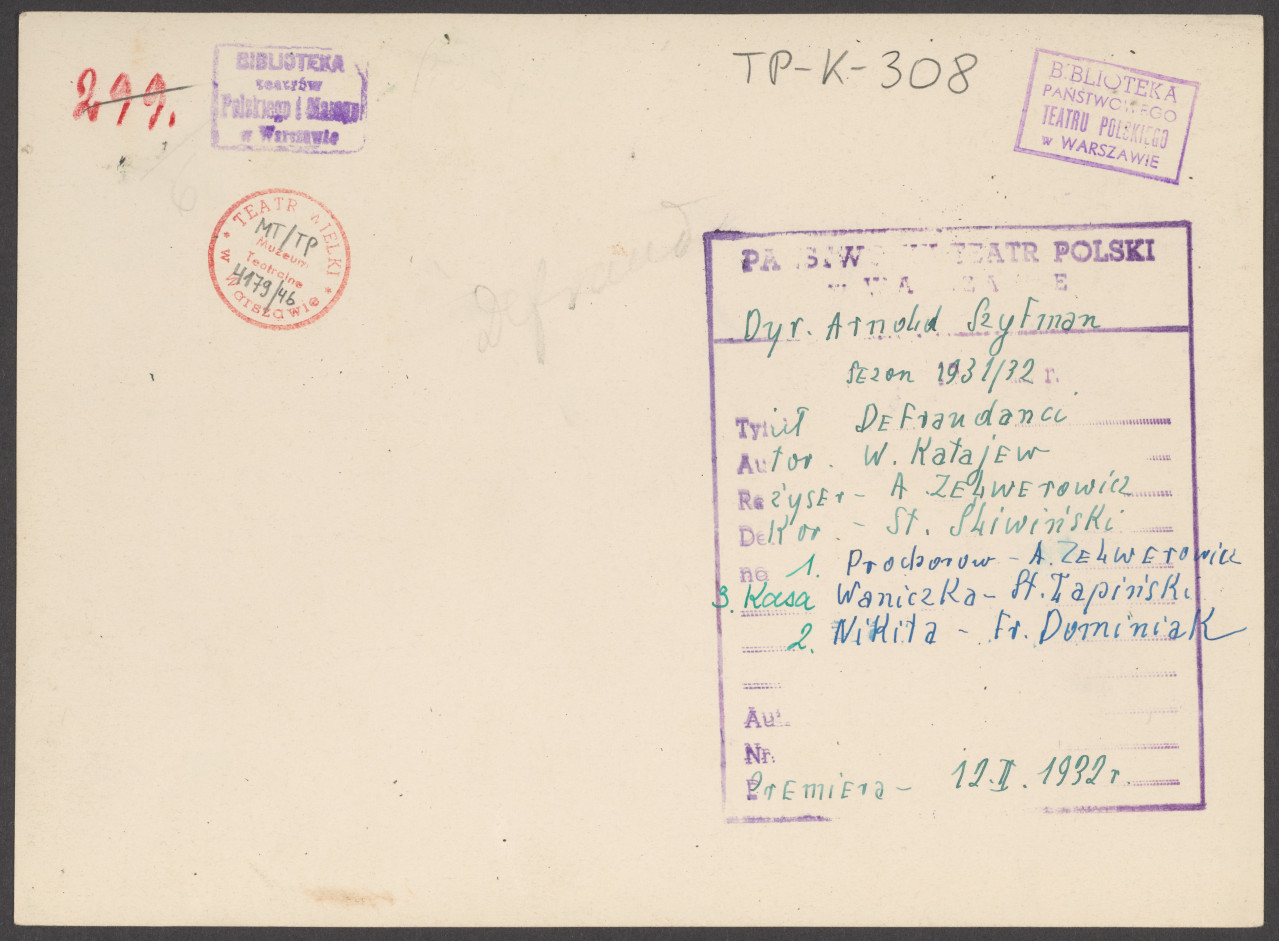 299.
BIBLIOTEKA
teatrów
Polskiego i Małego
w Warszawie
TP-K-308
BIBLIOTEKA
PAŃSTWOWEGO
TEATRU POLSKIEGO
w WARSZAWIE
TEATR WIELKI
MT/TP
Muzeum
Teatralne
4179/46
w Warszawie
Defraud
PAŃSTWOWY TEATR POLSKI
w WARSZAWIE
Dyr. Arnold Szyfman
Sezon 1931/32 r.
Tytuł Defraudanci
Autor. W. Katajew
Reżyser - A. Zelwerowicz
Dekor. - St. Śliwiński
na 1. Prochorow - A. Zelwerowicz
3. Kasa Waniczka - St. Łapiński
2. Nikita - Fr. Dominiak
Aut.
Nr.
Premiera - 12.II.1932 r.